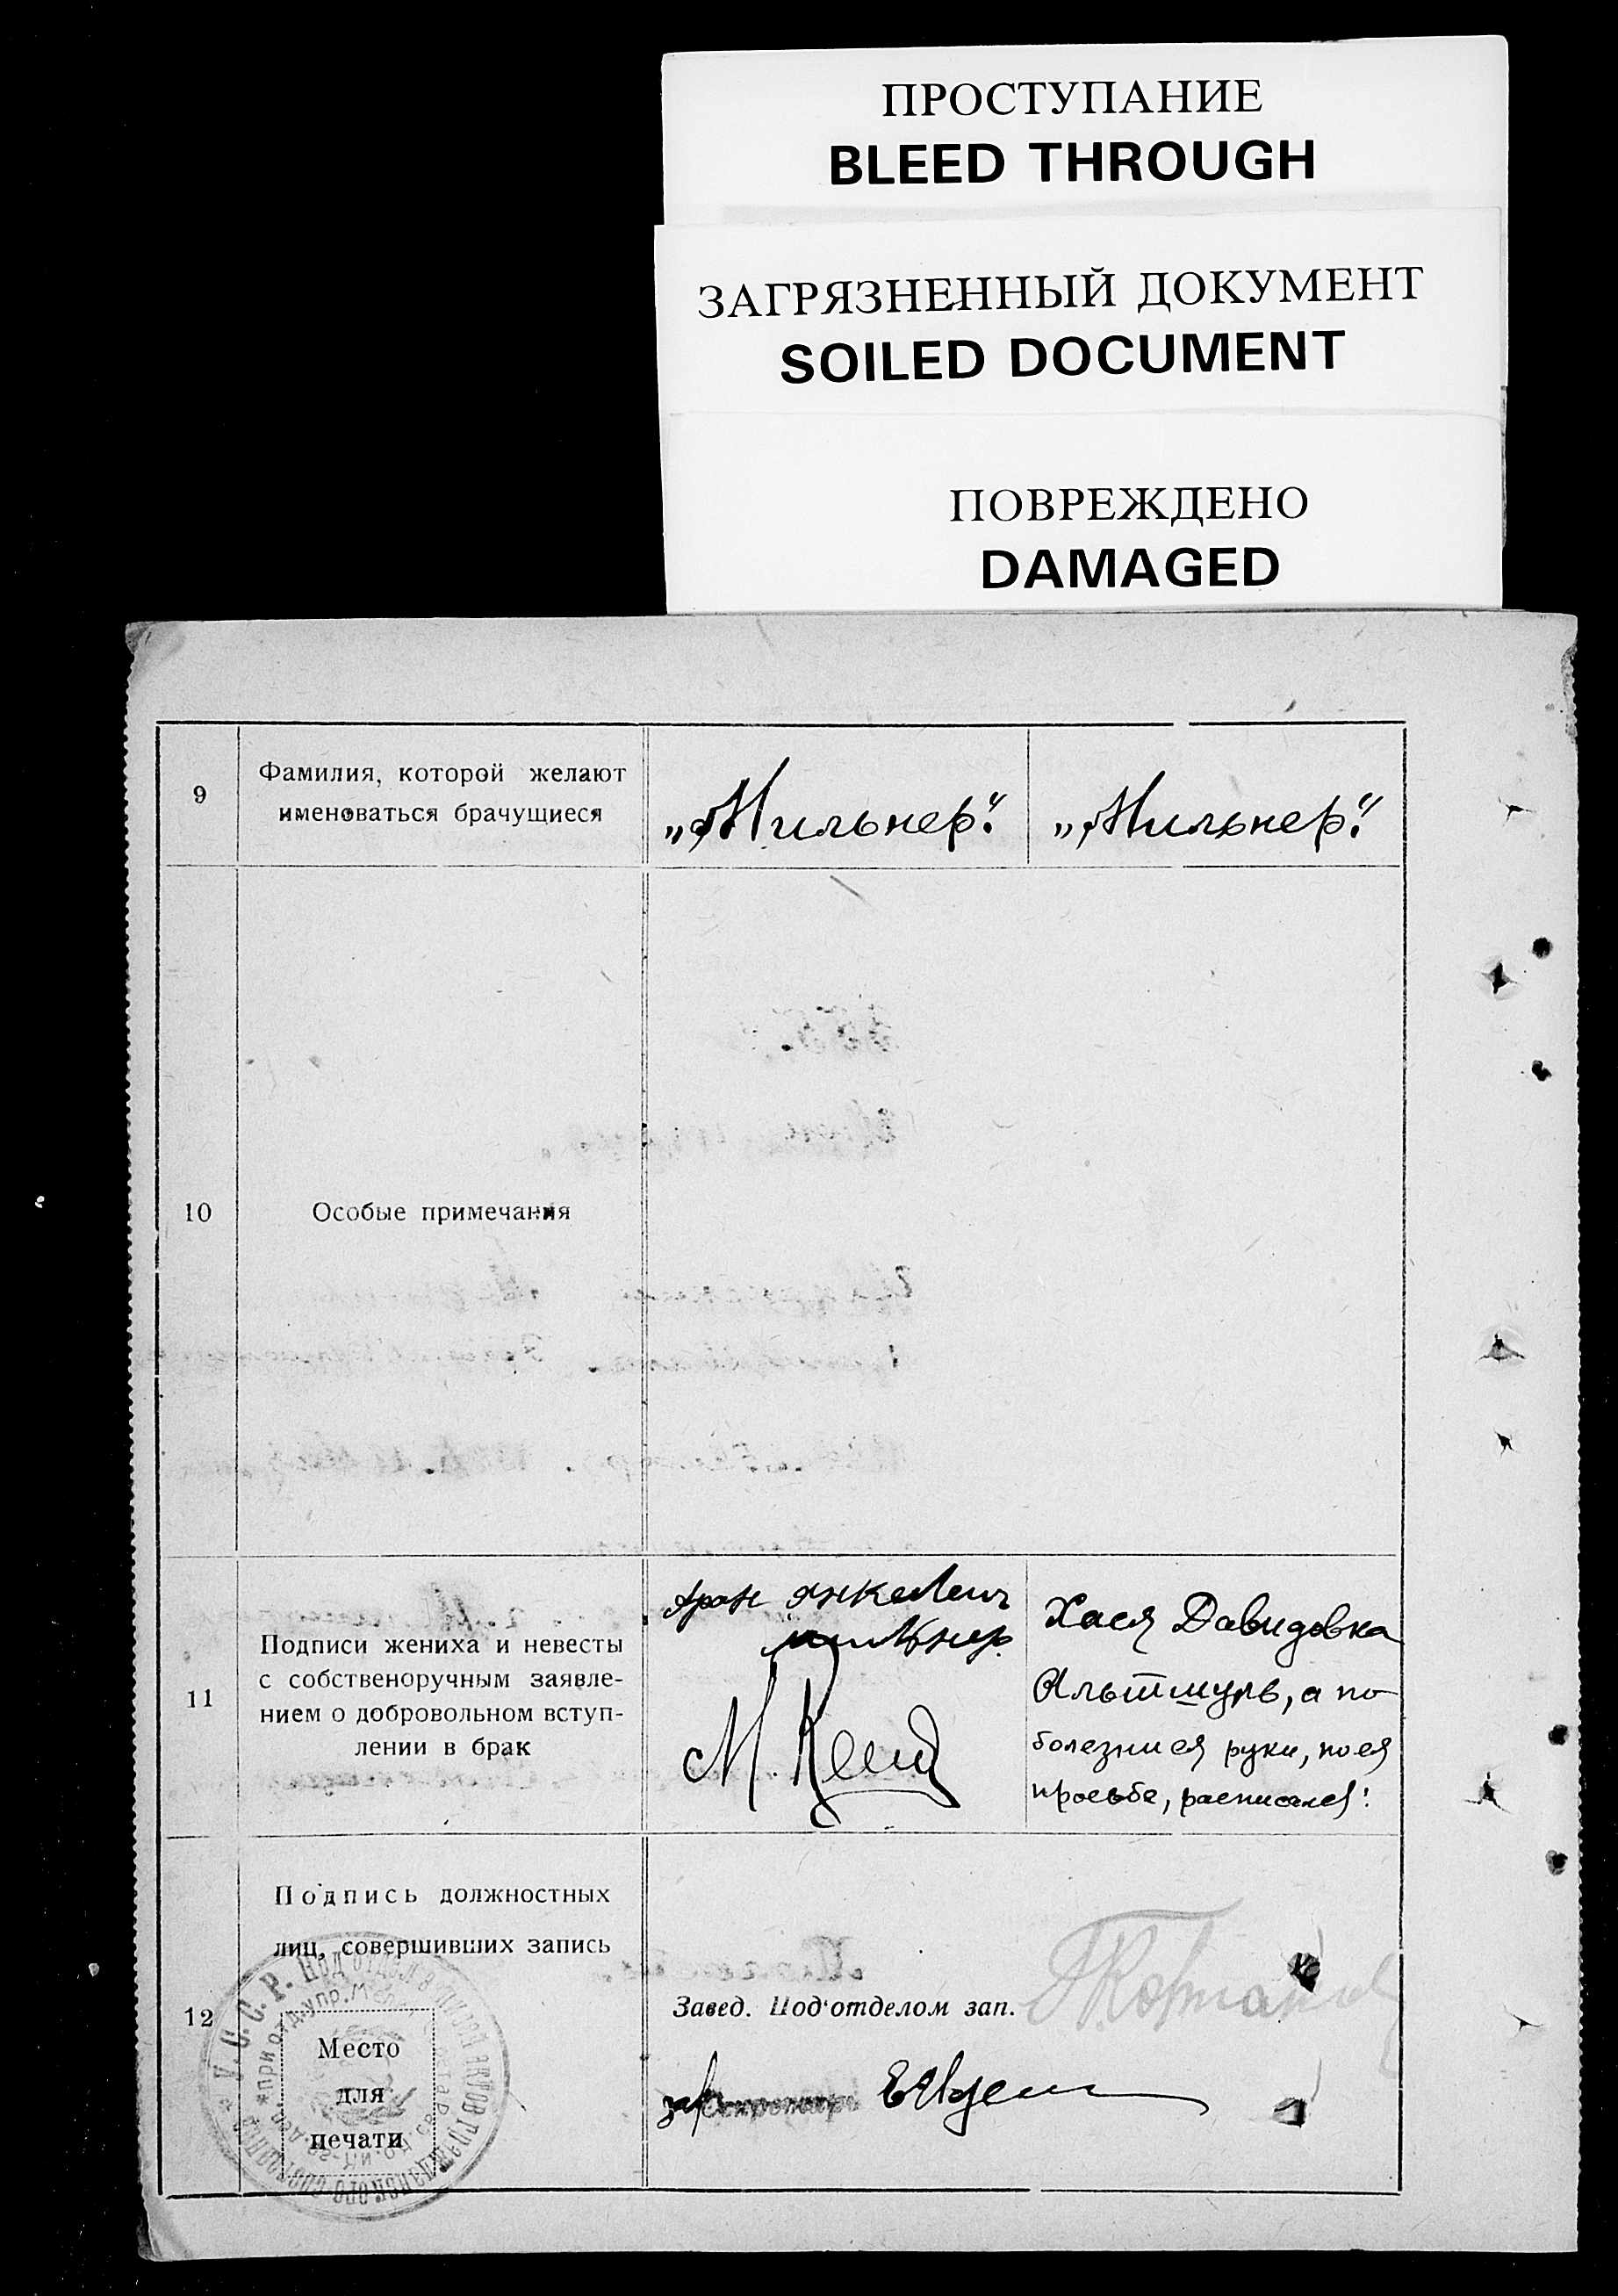 ПРОСТУПАНИЕ
BLEED THROUGH
ЗАГРЯЗНЕННЫЙ ДОКУМЕНТ
SOILED DOCUMENT
ПОВРЕЖДЕНО
DAMAGED
9
Фамилия, которой желают
именоваться брачущиеся
„Мильнер".
„Мильнер".
10
Особые примечания
11
Подписи жениха и невесты
с собственоручным заявле-
нием о добровольном вступ-
лении в брак
Арон Янкелевич
Мильнер.
Хася Давидовна
Альтшуль, а по
болезни ея руки, по ея
просьбе, расписался:
12
Подпись должностных
лиц, совершивших запись
Место
для
печати
У. С. С. Р. Под'отдел записи актов гражданского состояния
Завед. Под'отделом зап.
Секретарь